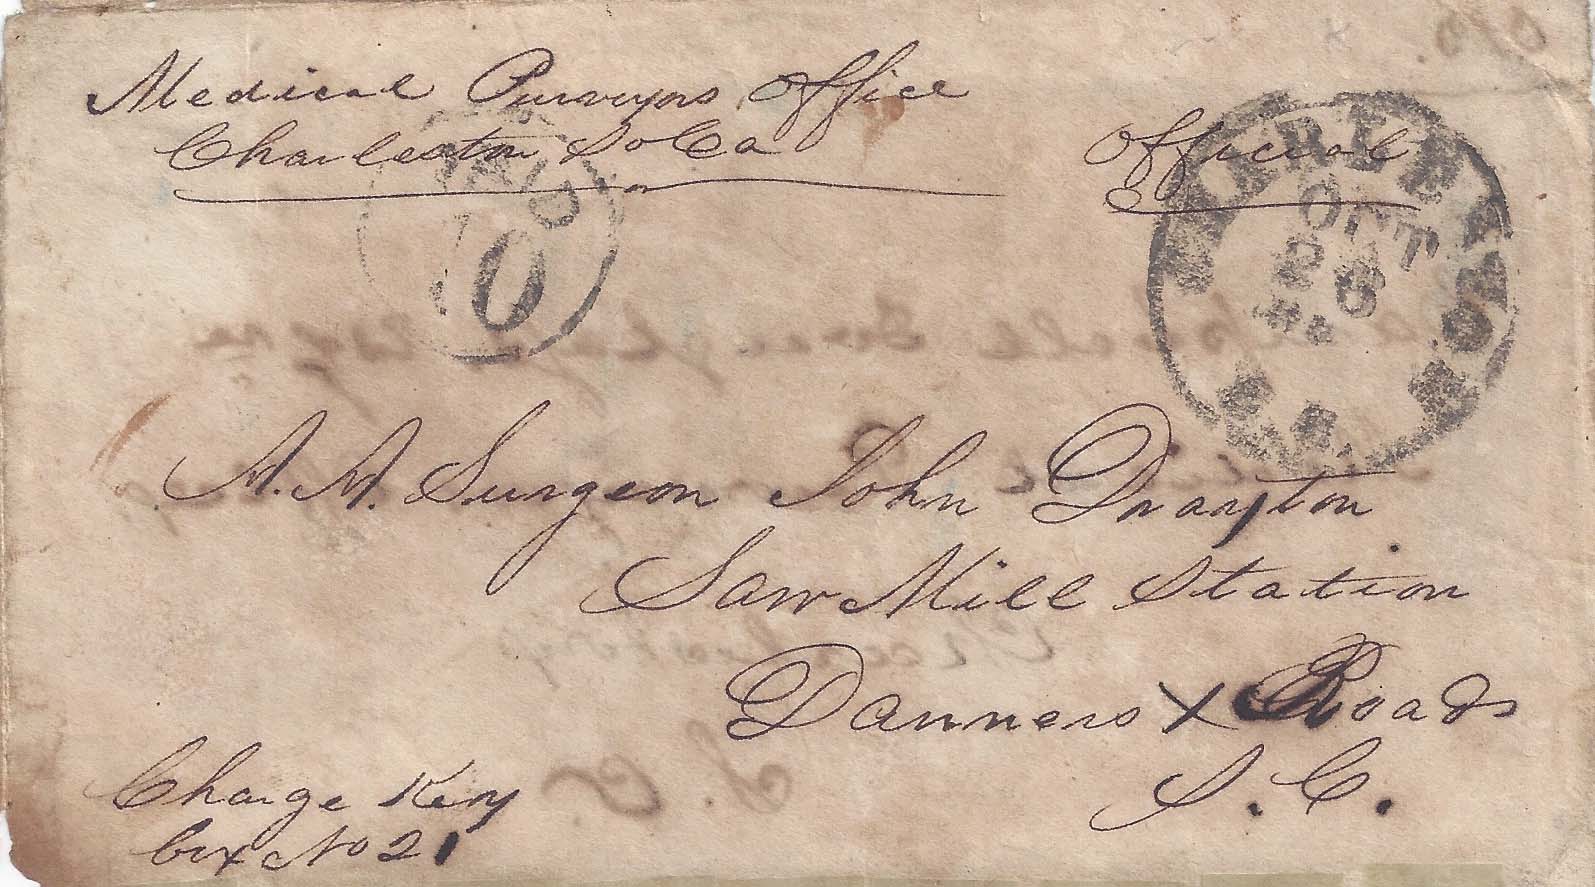 Medical Purveyors Office
Charleston So Ca
Official
PAID
10
CHARLESTON
OCT
26
S.C.
A. A. Surgeon John Drayton
Saw Mill Station
Danners X Roads
S. C.
Charge Key
Box No 21